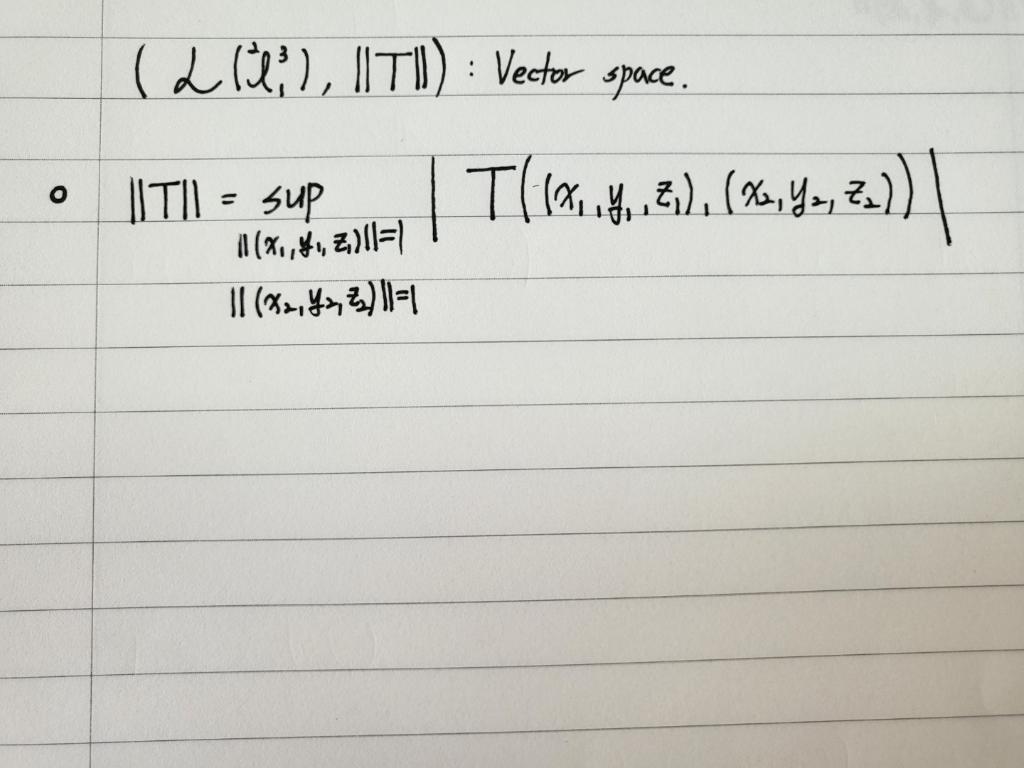 (ℒ(²ℓ₁³), ||T||) : Vector space.
∘ ||T|| = sup | T((x₁, y₁, z₁), (x₂, y₂, z₂)) |
||(x₁, y₁, z₁)||=1
||(x₂, y₂, z₂)||=1